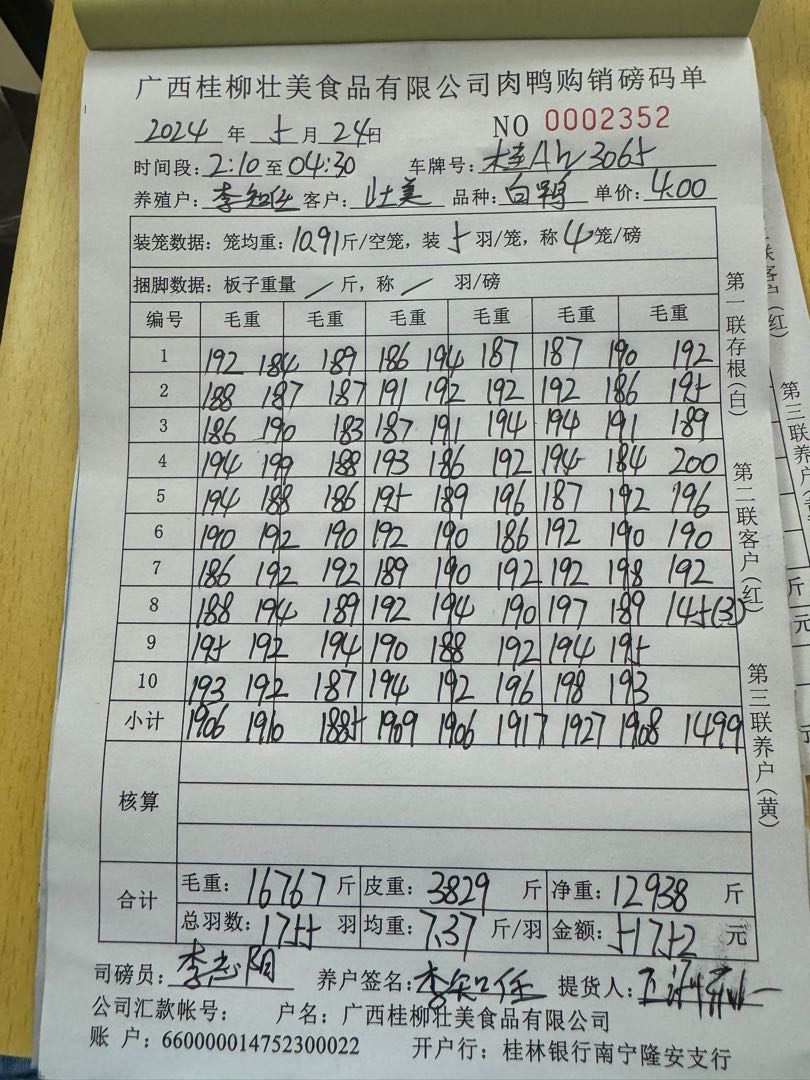 广西桂柳壮美食品有限公司肉鸭购销磅码单
2024 年 5 月 24日 NO 0002352
时间段: 2:10 至 04:30 车牌号: 桂AW3065
养殖户: 李知任 客户: 壮美 品种: 白鸭 单价: 4.00
装笼数据: 笼均重: 10.91斤/空笼, 装 5 羽/笼, 称 4 笼/磅
捆脚数据: 板子重量 / 斤, 称 / 羽/磅
编号 毛重 毛重 毛重 毛重 毛重 毛重
1 192 184 189 186 194 187 187 190 192
2 188 187 187 191 192 192 192 186 195
3 186 190 183 187 191 194 194 191 189
4 194 199 188 193 186 192 194 184 200
5 194 188 186 195 189 196 187 192 196
6 190 192 190 192 190 186 192 190 190
7 186 192 192 189 190 192 192 198 192
8 188 194 189 192 194 190 197 189 145(3)
9 195 192 194 190 188 192 194 195
10 193 192 187 194 192 196 198 193
小计 1906 1910 1885 1909 1906 1917 1927 1908 1499
核算
合计 毛重: 16767 斤 皮重: 3829 斤 净重: 12938 斤
总羽数: 1755 羽 均重: 7.37 斤/羽 金额: 51752 元
司磅员: 李志阳 养户签名: 李知任 提货人:
公司汇款帐号: 户名: 广西桂柳壮美食品有限公司
账 户: 660000014752300022 开户行: 桂林银行南宁隆安支行
第一联存根(白)
第二联客户(红)
第三联养户(黄)